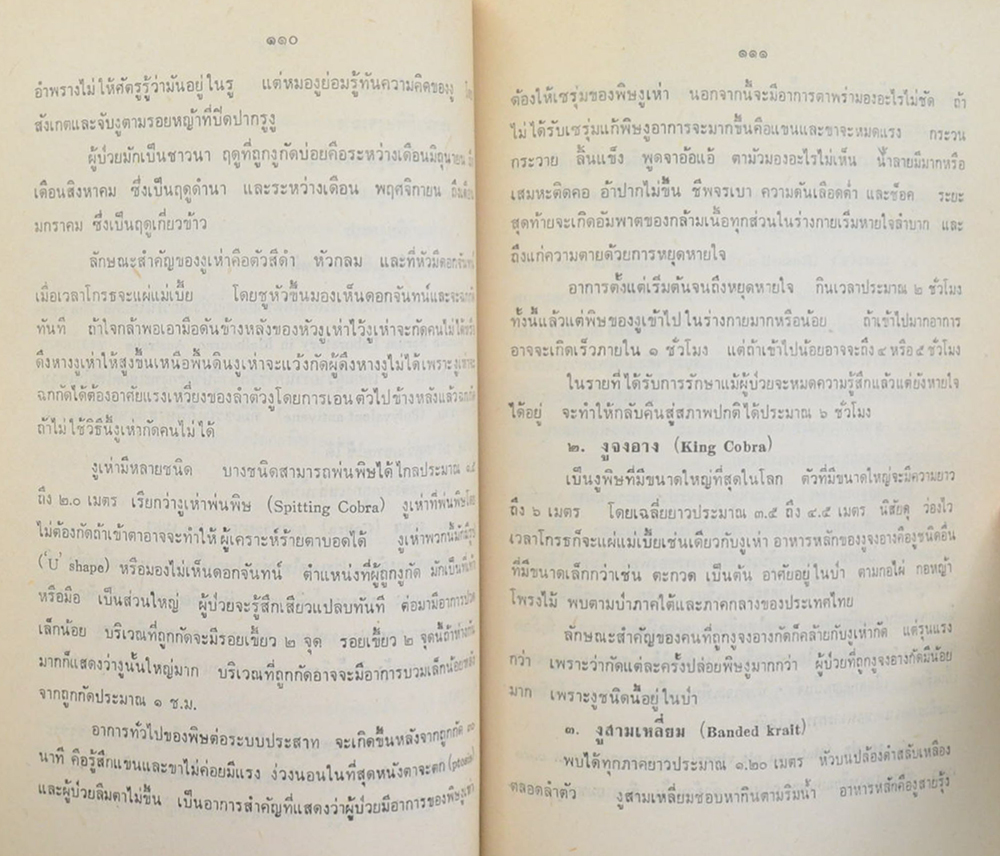 ๑๑๐
อำพรางไม่ให้ศัตรูรู้ว่ามันอยู่ในรู แต่หมองูย่อมรู้ทันความคิดของงู
สังเกตและจับงูตามรอยหญ้าที่ปิดปากรูงู
ผู้ป่วยมักเป็นชาวนา ฤดูที่ถูกงูกัดบ่อยคือระหว่างเดือนมิถุนายน
เดือนสิงหาคม ซึ่งเป็นฤดูดำนา และระหว่างเดือน พฤศจิกายน ถึงเดือน
มกราคม ซึ่งเป็นฤดูเกี่ยวข้าว
ลักษณะสำคัญของงูเห่าคือตัวสีดำ หัวกลม และที่หัวมีดอกจันทน์
เมื่อเวลาโกรธจะแผ่แม่เบี้ย โดยชูหัวขึ้นมองเห็นดอกจันทน์และจะฉกกัด
ทันที ถ้าใจกล้าพอเอามือดันข้างหลังของหัวงูเห่าไว้งูเห่าจะกัดคนไม่ได้
ดึงหางงูเห่าให้สูงขึ้นเหนือพื้นดินงูเห่าจะแว้งกัดผู้ดึงหางงูไม่ได้เพราะงูเห่าจะ
ฉกกัดได้ต้องอาศัยแรงเหวี่ยงของลำตัวงูโดยการเอนตัวไปข้างหลังแล้วฉกกัด
ถ้าไม่ใช้วิธีนี้งูเห่ากัดคนไม่ได้
งูเห่ามีหลายชนิด บางชนิดสามารถพ่นพิษได้ไกลประมาณ ๑.๕
ถึง ๒.๐ เมตร เรียกว่างูเห่าพ่นพิษ (Spitting Cobra) งูเห่าที่พ่นพิษโดย
ไม่ต้องกัดถ้าเข้าตาอาจจะทำให้ผู้เคราะห์ร้ายตาบอดได้ งูเห่าพวกนี้มักมีรูป
('U' shape) หรือมองไม่เห็นดอกจันทน์ ตำแหน่งที่ผู้ถูกงูกัด มักเป็นที่เท้า
หรือมือ เป็นส่วนใหญ่ ผู้ป่วยจะรู้สึกเสียวแปลบทันที ต่อมามีอาการปวด
เล็กน้อย บริเวณที่ถูกกัดจะมีรอยเขี้ยว ๒ จุด รอยเขี้ยว ๒ จุดนี้ถ้าห่างกัน
มากก็แสดงว่างูนั้นใหญ่มาก บริเวณที่ถูกกัดอาจจะมีอาการบวมเล็กน้อยหลัง
จากถูกกัดประมาณ ๑ ช.ม.
อาการทั่วไปของพิษต่อระบบประสาท จะเกิดขึ้นหลังจากถูกกัด ๓๐
นาที คือรู้สึกแขนและขาไม่ค่อยมีแรง ง่วงนอนในที่สุดหนังตาจะตก (ptosis)
และผู้ป่วยลืมตาไม่ขึ้น เป็นอาการสำคัญที่แสดงว่าผู้ป่วยมีอาการของพิษงูเห่า
๑๑๑
ต้องให้เซรุ่มของพิษงูเห่า นอกจากนี้จะมีอาการตาพร่ามองอะไรไม่ชัด ถ้า
ไม่ได้รับเซรุ่มแก้พิษงูอาการจะมากขึ้นคือแขนและขาจะหมดแรง กระวน
กระวาย ลิ้นแข็ง พูดจาอ้อแอ้ ตามัวมองอะไรไม่เห็น น้ำลายมีมากหรือ
เสมหะติดคอ อ้าปากไม่ขึ้น ชีพจรเบา ความดันเลือดต่ำ และช็อค ระยะ
สุดท้ายจะเกิดอัมพาตของกล้ามเนื้อทุกส่วนในร่างกายเริ่มหายใจลำบาก และ
ถึงแก่ความตายด้วยการหยุดหายใจ
อาการตั้งแต่เริ่มต้นจนถึงหยุดหายใจ กินเวลาประมาณ ๒ ชั่วโมง
ทั้งนี้แล้วแต่พิษของงูเข้าไปในร่างกายมากหรือน้อย ถ้าเข้าไปมากอาการ
อาจจะเกิดเร็วภายใน ๑ ชั่วโมง แต่ถ้าเข้าไปน้อยอาจจะถึง ๔ หรือ ๕ ชั่วโมง
ในรายที่ได้รับการรักษาแม้ผู้ป่วยจะหมดความรู้สึกแล้วแต่ยังหายใจ
ได้อยู่ จะทำให้กลับคืนสู่สภาพปกติได้ประมาณ ๖ ชั่วโมง
๒. งูจงอาง (King Cobra)
เป็นงูพิษที่มีขนาดใหญ่ที่สุดในโลก ตัวที่มีขนาดใหญ่จะมีความยาว
ถึง ๖ เมตร โดยเฉลี่ยยาวประมาณ ๓.๕ ถึง ๔.๕ เมตร นิสัยดุ ว่องไว
เวลาโกรธก็จะแผ่แม่เบี้ยเช่นเดียวกับงูเห่า อาหารหลักของงูจงอางคืองูชนิดอื่น
ที่มีขนาดเล็กกว่าเช่น ตะกวด เป็นต้น อาศัยอยู่ในป่า ตามกอไผ่ กอหญ้า
โพรงไม้ พบตามป่าภาคใต้และภาคกลางของประเทศไทย
ลักษณะสำคัญของคนที่ถูกงูจงอางกัดก็คล้ายกับงูเห่ากัด แต่รุนแรง
กว่า เพราะว่ากัดแต่ละครั้งปล่อยพิษงูมากกว่า ผู้ป่วยที่ถูกงูจงอางกัดมีน้อย
มาก เพราะงูชนิดนี้อยู่ในป่า
๓. งูสามเหลี่ยม (Banded krait)
พบได้ทุกภาคยาวประมาณ ๑.๒๐ เมตร หัวบนปล้องดำสลับเหลือง
ตลอดลำตัว งูสามเหลี่ยมชอบหากินตามริมน้ำ อาหารหลักคืองูสายรุ้ง